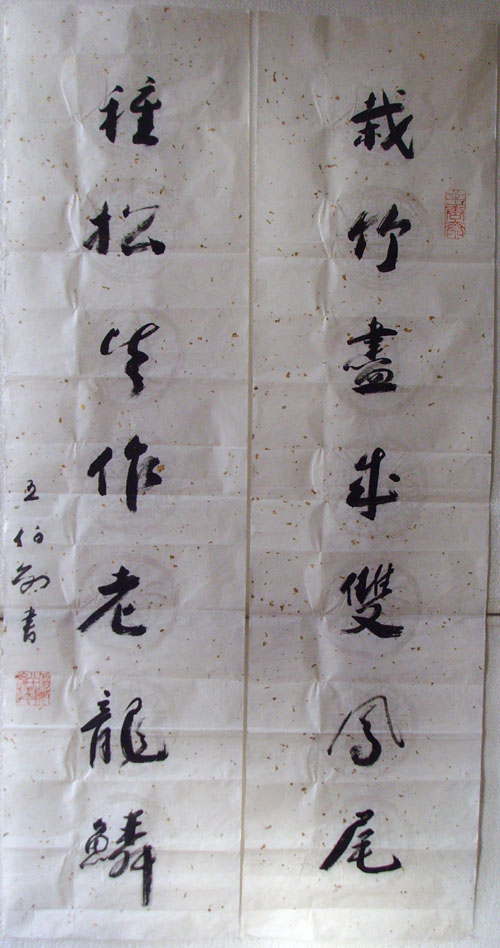 栽竹盡成雙鳳尾
種松皆作老龍鱗
五伯書